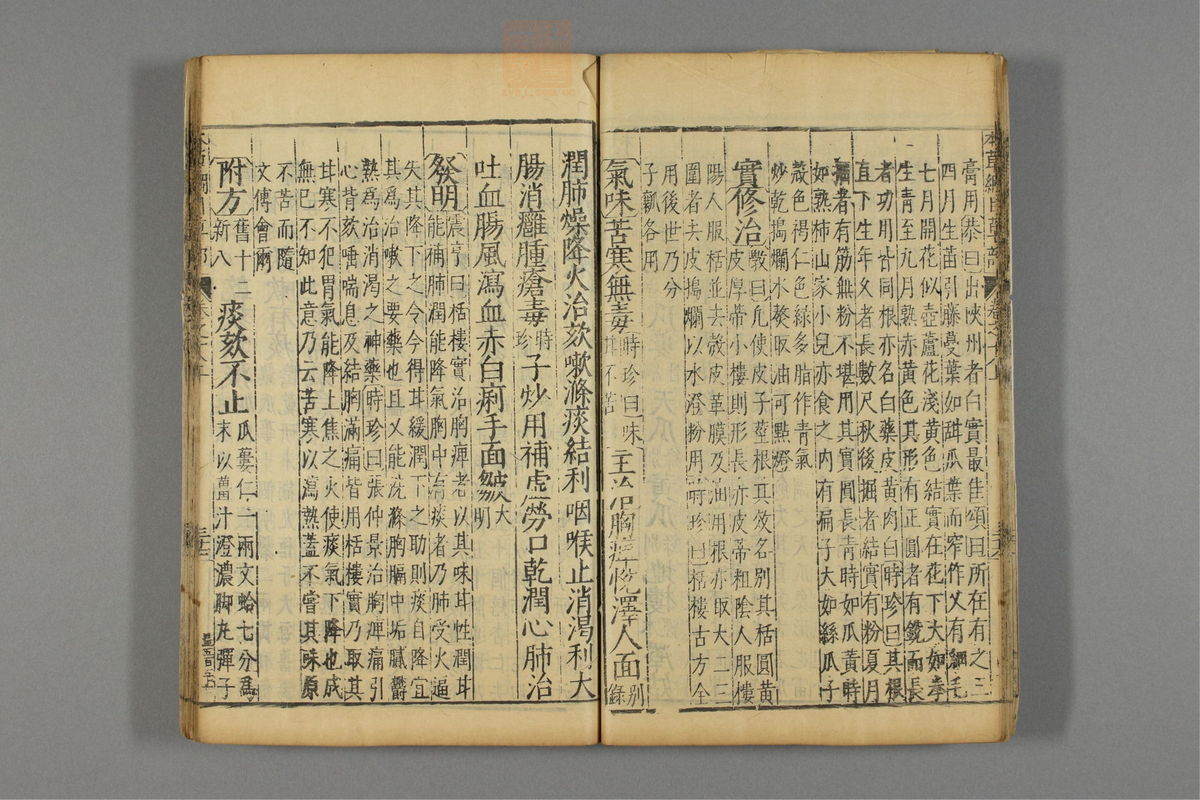 本草綱目草部
膏用恭曰出陜州者白實最佳頌曰所在有之三
四月生苗引藤蔓葉如甜瓜葉而窄作叉有細毛
七月開花似壺蘆花淺黃色結實在花下大如拳
生靑至九月熟赤黃色其形有正圓者有銳而長
者功用皆同根亦名白藥皮黃肉白時珍曰其根
直下生年久者長數尺秋後掘者結實有粉夏月
掘者有筋無粉不堪用其實圓長靑時如瓜黃時
如熟柿山家小兒亦食之內有扁子大如絲瓜子
殼色褐仁色綠多脂作靑氣
炒乾搗爛水熬取油可點燈
實修治斅曰凡使皮子莖根其效各別其栝圓黃
皮厚蒂小樓則形長赤皮蒂粗陰人服樓
陽人服栝並去殼皮革膜及油用根亦取大二三
圍者去皮搗爛以水澄粉用時珍曰栝樓古方全
用後世乃分
子瓤各用
氣味苦寒無毒時珍曰味甘不苦主治胸痺悅澤人面別錄
潤肺燥降火治欬嗽滌痰結利咽喉止消渴利大
腸消癰腫瘡毒時珍子炒用補虛勞口乾潤心肺治
吐血腸風瀉血赤白痢手面皺大明
發明震亨曰栝樓實治胸痺者以其味甘性潤甘
能補肺潤能降氣胸中有痰者乃肺受火逼
失其降下之令今得甘緩潤下之助則痰自降宜
其爲治嗽之要藥也且又能洗滌胸膈中垢膩鬱
熱爲治消渴之神藥時珍曰張仲景治胸痺痛引
心背欬唾喘息及結胸滿痛皆用栝樓實乃取其
甘寒不犯胃氣能降上焦之火使痰氣下降也成
無己不知此意乃云苦寒以瀉熱蓋不嘗其味原
不苦而隨
文傅會爾
附方舊十二新八痰欬不止瓜蔞仁一兩文蛤七分爲
末以薑汁澄濃脚丸彈子